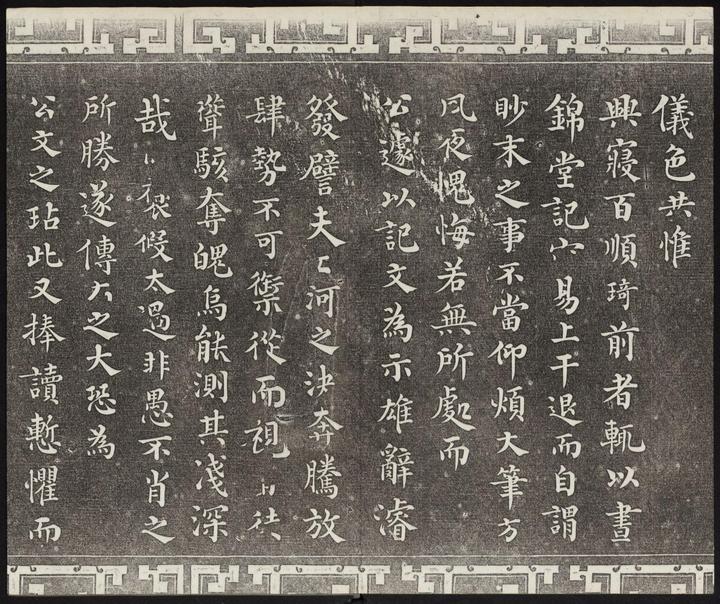 儀色共惟
興寢百順琦前者輒以晝
錦堂記易上干退而自謂
眇末之事不當仰煩大筆方
夙夜愧悔若無所處而
公遽以記文為示雄辭濬
發譬夫河之決奔騰放
肆勢不可禦從而視
聳駭奪魄烏能測其淺深
哉假太過非愚不肖之
所勝遂傳之大恐為
公文之玷此又捧讀慙懼而